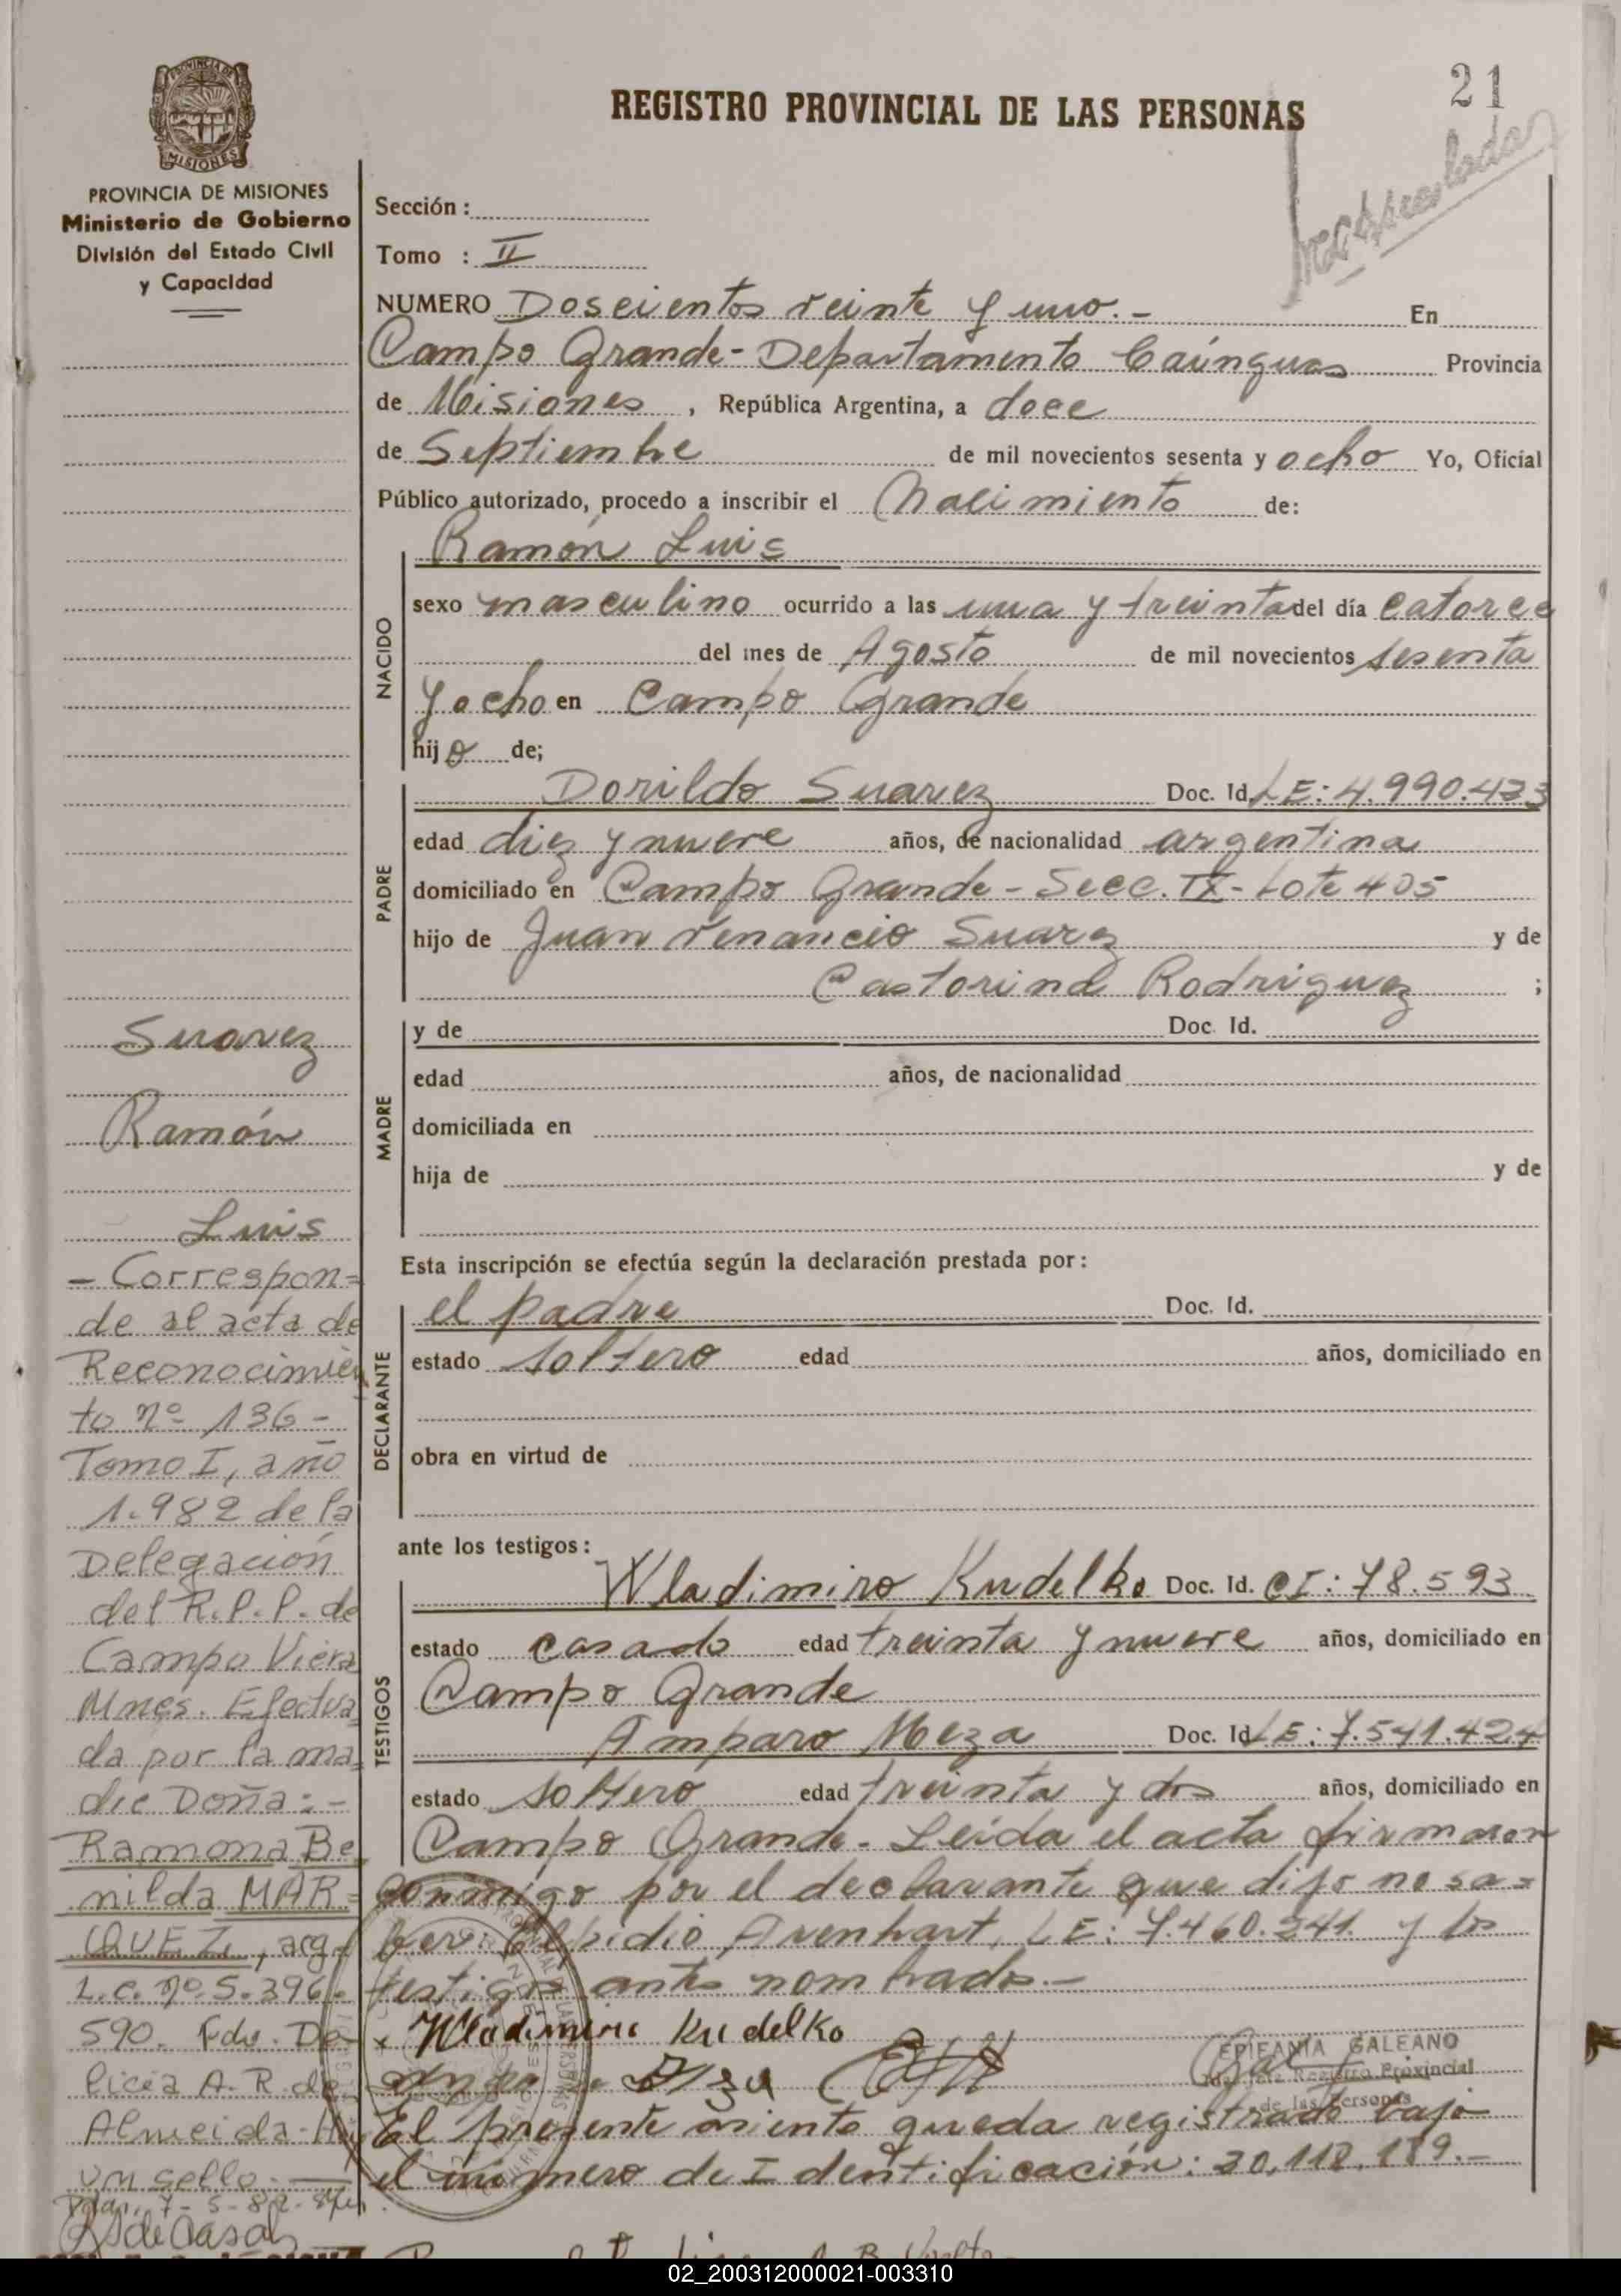 21
REGISTRO PROVINCIAL DE LAS PERSONAS
PROVINCIA DE
MISIONES
PROVINCIA DE MISIONES
Ministerio de Gobierno
División del Estado Civil
y Capacidad
Sección :
Tomo : II
NUMERO Doscientos veinte y uno.- En
Campo Grande- Departamento Caínguas Provincia
de Misiones , República Argentina, a doce
de Septiembre de mil novecientos sesenta y ocho Yo, Oficial
Público autorizado, procedo a inscribir el Nacimiento de:
NACIDO
Ramón Luis
sexo masculino ocurrido a las una y treinta del día catorce
del mes de Agosto de mil novecientos sesenta
y ocho en Campo Grande
hijo de;
PADRE
Dorildo Suarez Doc. Id. LE: 4.990.433
edad diez y nueve años, de nacionalidad argentina
domiciliado en Campo Grande - Secc. IX - Lote 405
hijo de Juan Venancio Suarez y de
Castorina Rodriguez ;
MADRE
y de Doc. Id.
edad años, de nacionalidad
domiciliada en
hija de y de
Esta inscripción se efectúa según la declaración prestada por :
DECLARANTE
el padre Doc. Id.
estado soltero edad años, domiciliado en
obra en virtud de
ante los testigos :
TESTIGOS
Wladimiro Kudelko Doc. Id. CI: 78.593
estado casado edad treinta y nueve años, domiciliado en
Campo Grande
Amparo Meza Doc. Id. LE: 7.541.424
estado soltero edad treinta y dos años, domiciliado en
Campo Grande- Leída el acta firmaron
conmigo por el declarante que dijo no sa=
ber Elpidio Avenhart, LE: 7.460.241. y los
testigos antes nombrados.-
x Wladimiro Kudelko
EPIFANIA GALEANO
Registro Provincial
de las Personas
El presente asiento queda registrado bajo
el número de Identificación: 20.118.189.-
Suarez
Ramón
Luis
- Correspon=
de al acta de
Reconocimien
to nº 136-
Tomo I, año
1.982 de la
Delegación
del R.P.P. de
Campo Viera
Mnes. Efectua
da por la ma=
dre Doña:-
Ramona Be
nilda MAR=
QUEZ, arg.
L.C. nº 5.396.
590. Fdo. De-
licia A. R. de
Almeida- Hay
un sello.-
Pdas, 7-5-82-
de Casal
02_200312000021-003310